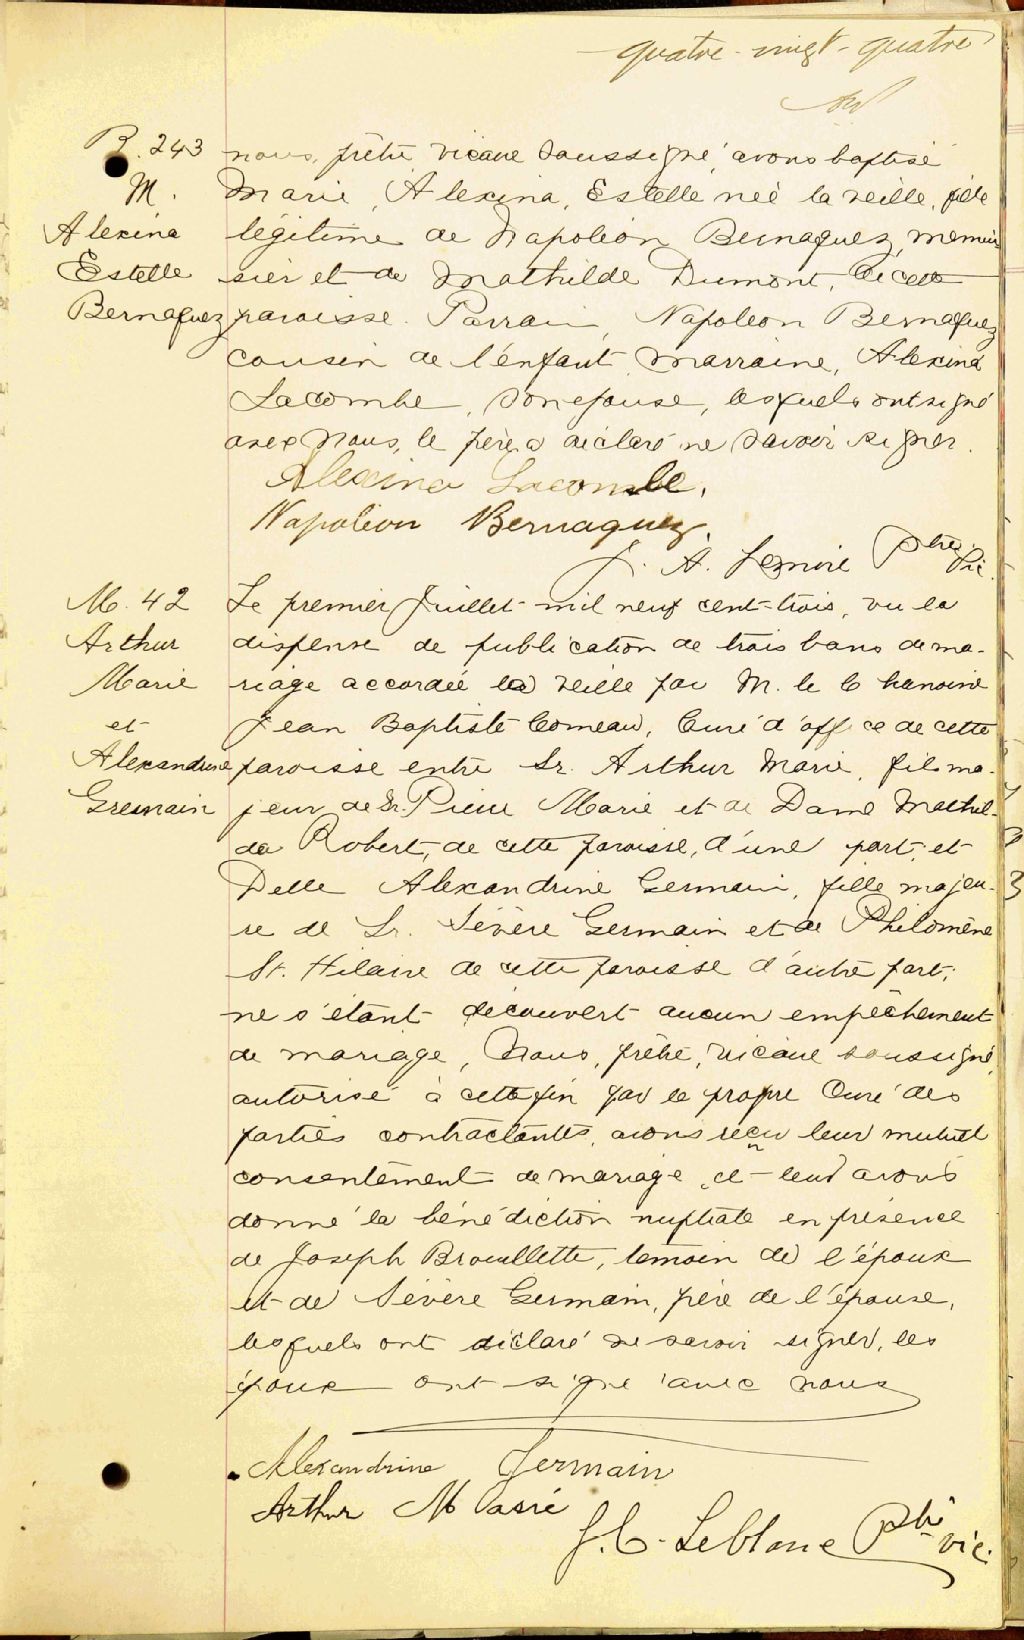 quatre-vingt-quatre
B. 243
M.
Alexina
Estelle
Bernaquez
nous, prêtre vicaire soussigné, avons baptisé
Marie, Alexina, Estelle née la veille, fille
légitime de Napoléon Bernaquez, menui
sier et de Mathilde Dumont, de cette
paroisse. Parrain, Napoléon Bernaquez
cousin de l'enfant, marraine, Alexina
Lacombe, son epouse, lesquels ont signé
avec nous, le père a déclaré ne savoir signer.
Alexina Lacombe.
Napoléon Bernaquez.
J. A. Lemire Ptre Vic.
M. 42
Arthur
Marie
et
Alexandrine
Germain
Le premier Juillet mil neuf cent-trois, vu la
dispense de publication de trois bans de ma-
riage accordée la veille par M. le Chanoine
Jean Baptiste Comeau, Curé d'office de cette
paroisse entre Sr. Arthur Marie, fils ma-
jeur de Sr. Pierre Marie et de Dame Mathil-
da Robert, de cette paroisse, d'une part, et
Delle Alexandrine Germain, fille majeu-
re de Sr. Sévère Germain et de Philomène
St. Hilaire de cette paroisse d'autre part;
ne s'étant découvert aucun empêchement
de mariage, Nous, prêtre, vicaire soussigné,
autorisé à cette fin par le propre Curé des
parties contractantes, avons reçu leur mutuel
consentement de mariage et leur avons
donné la bénédiction nuptiale en présence
de Joseph Brouillette, témoin de l'époux
et de Sévère Germain, père de l'épouse,
lesquels ont déclaré ne savoir signer, les
époux ont signé avec nous
Alexandrine Germain
Arthur Masrie
J. C. Leblanc Ptre vic.